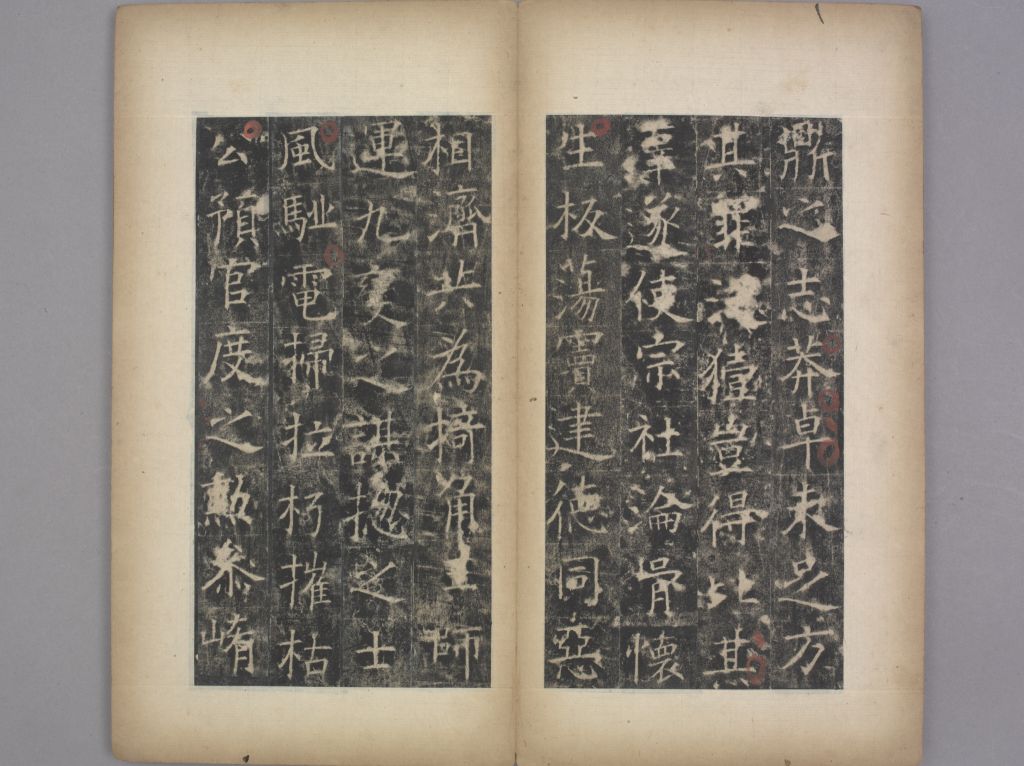 鼎之志莽卓未足方
其罪浞豷豈得比其
辜遂使宗社淪胥懷
生板蕩竇建德同惡
相濟共為掎角王師
運九變之謀摠之士
風馳電掃拉朽摧枯
公預官度之勳參崤